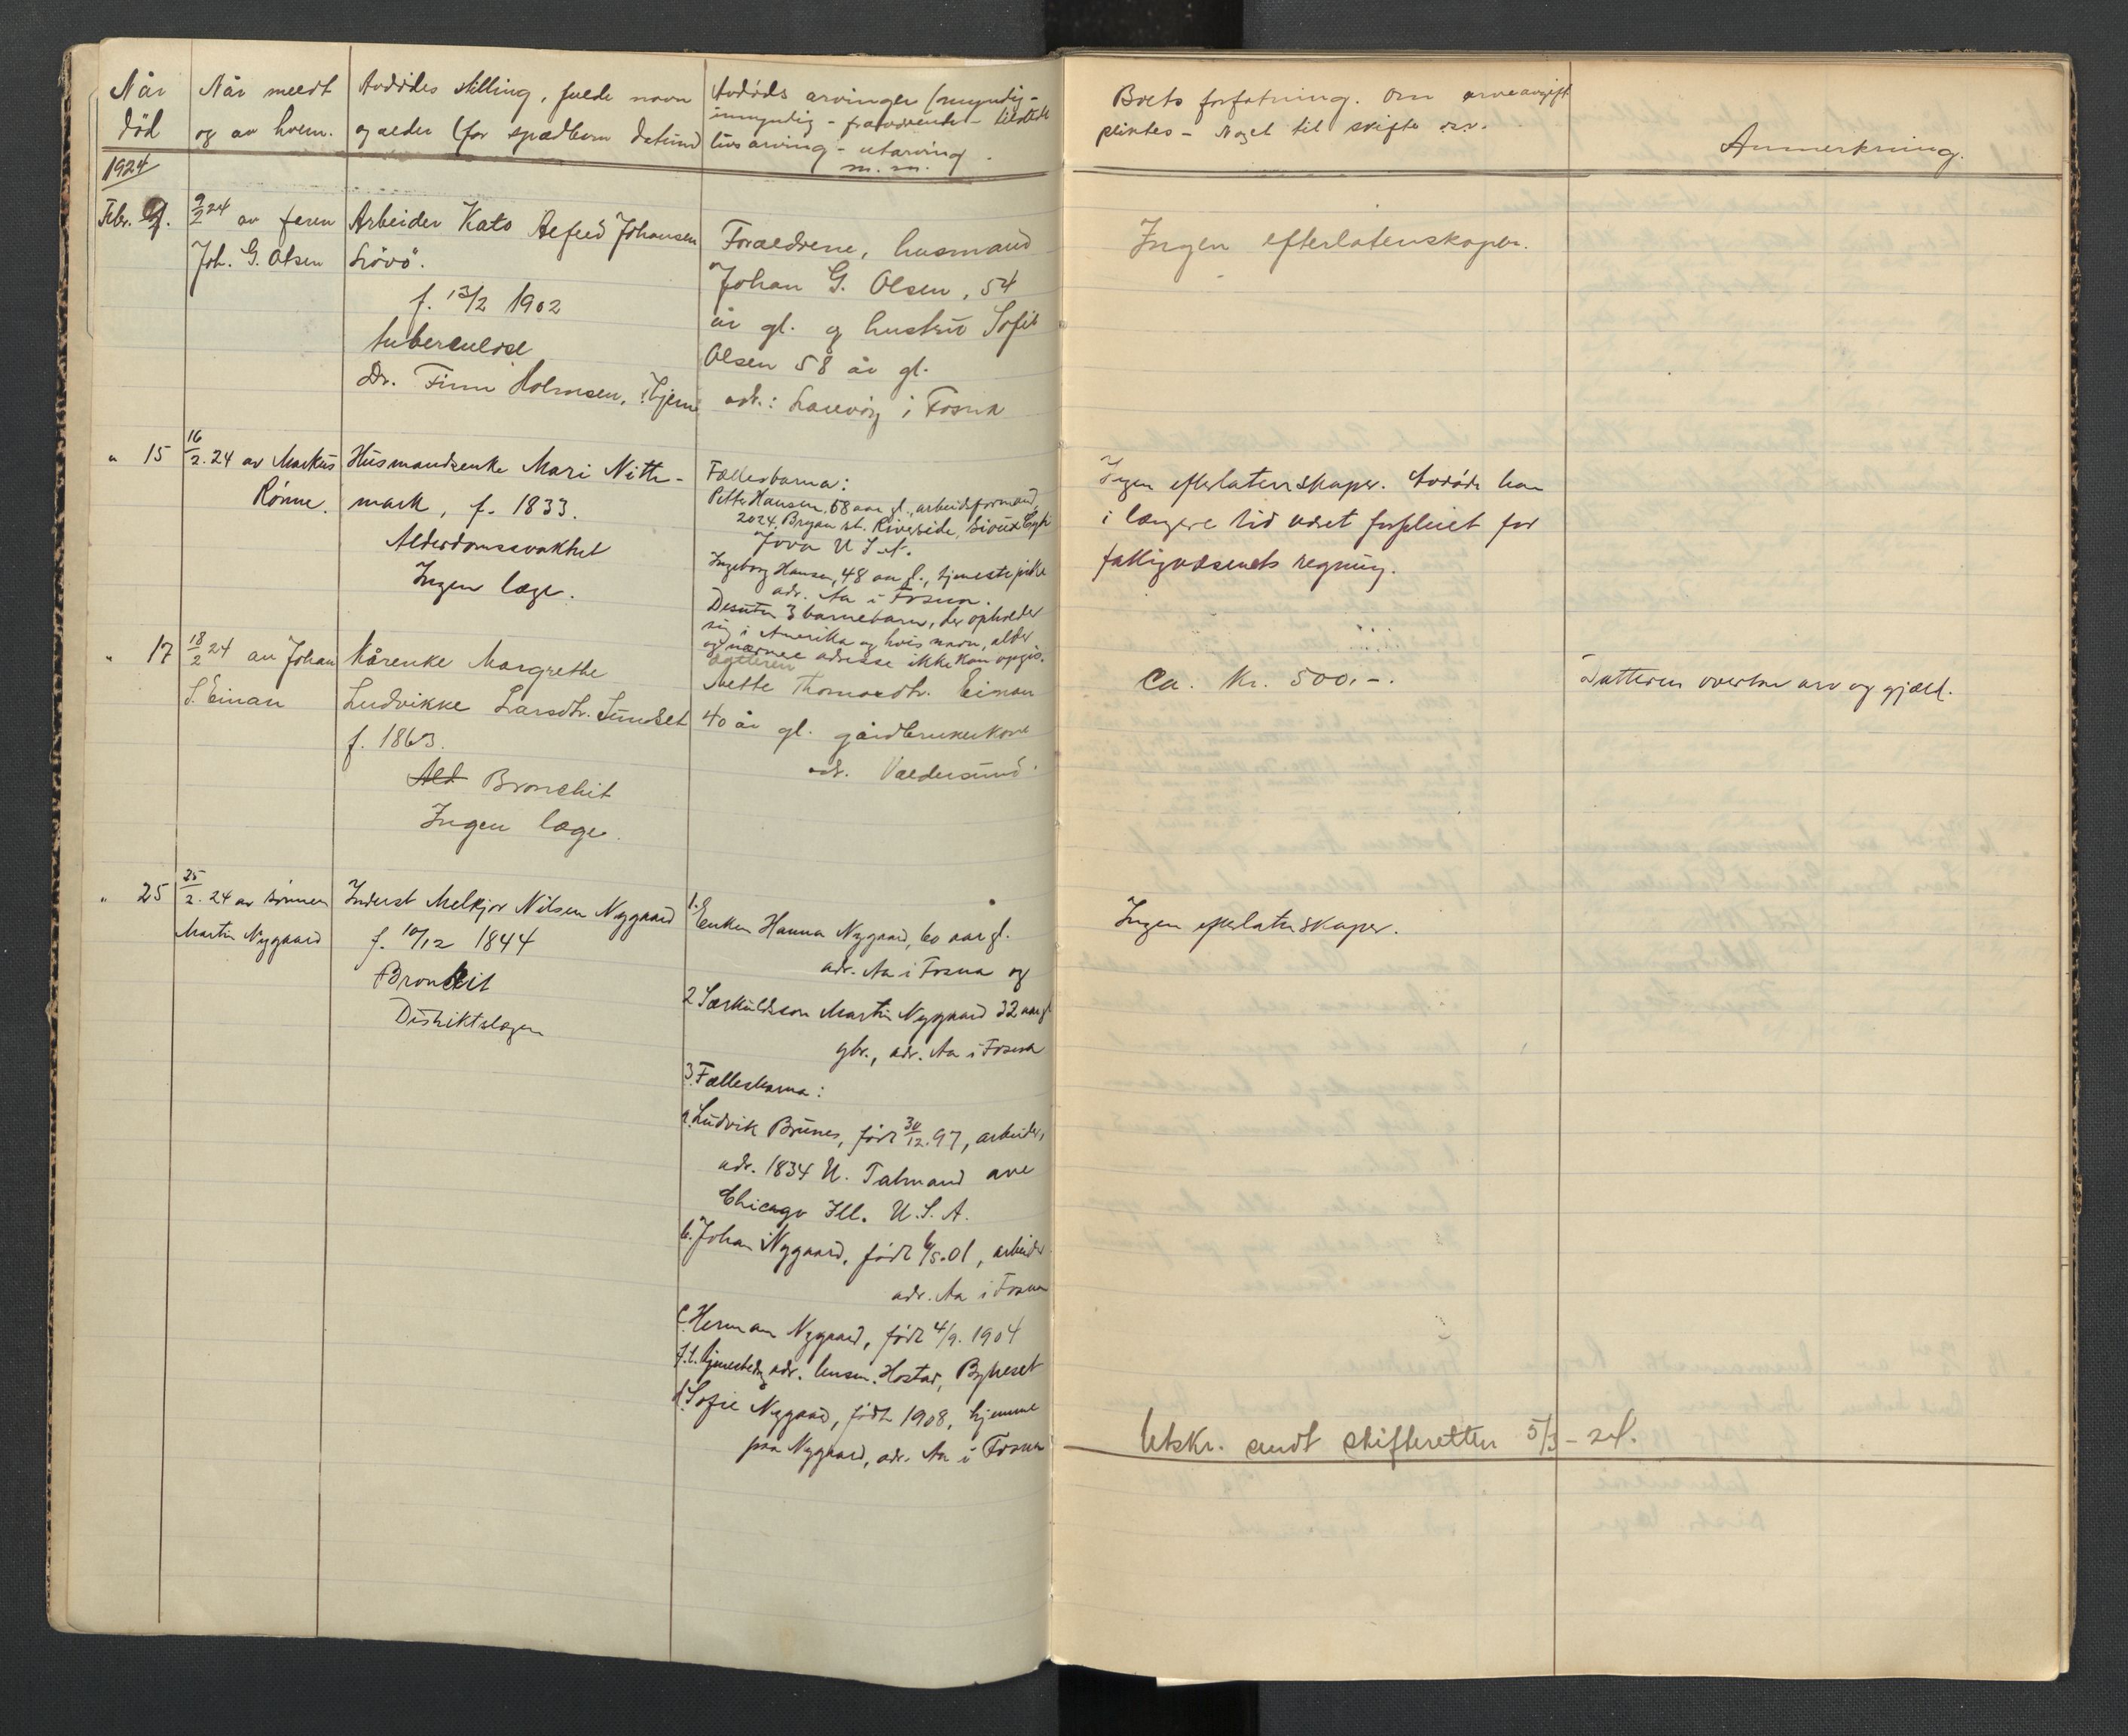 Når
død
Når meldt
og av hvem.
Avdødes stilling, fulde navn
og alder (for spædbarn datum)
Avdøds arvinger (myndig-
umyndig - fraværende - tilstede
livsarving - utarving
m. m.
Boets forfatning. Om arveavgift
pliktes - Noget til skifte o.s.v.
Anmerkning.
1924
Febr. 9.
9/2 24 av faren
Joh. G. Olsen
Arbeider Kato Alfred Johansen
f. 13/2 1902
tuberculose
Dr. Finn Holmsen,
Forældrene, husmand
Johan G. Olsen, 54
år gl. og hustru Sofie
Olsen 58 år gl.
adr.: i Fosna
Ingen efterlatenskaper.
" 15
16/2.24 av Markus
Rönne.
Husmandsenke Mari Nitte-
mark, f. 1833.
Alderdomssvakhet
Ingen læge.
Fællesbarna:
Petter Hansen, 58 aar gl., arbeidsformand
2024, Bryan st. Riverside, Sioux City
Jova U S A.
Ingeborg Hansen, 48 aar gl., tjenestepike
adr. Aa i Fosna.
Desuten 3 barnebarn, der opholder
sig i Amerika og hvis navn, alder
og nærmere adresse ikke kan opgis.
Ingen efterlatenskaper. Avdøde har
i længere tid været forpleiet for
fattigvæsenets regning.
" 17
18/2 24 av Johan
S. Einan
Kårenke Margrethe
Ludvikke Larsdtr. Sundset
f. 1863.
Ald Bronchit
Ingen læge.
Datteren
Mette Thomasdtr. Einan
40 år gl. gårdbrukerkone
adr. Valdersund.
Ca. Kr. 500.-.
Datteren overtar arv og gjæld.
" 25
25/2.24 av sønnen
Martin Nygaard
Inderst Melkjor Nilsen Nygaard
f. 10/12 1844
Bronkit
Distriktslægen
1. Enken Hanna Nygaard, 60 aar gl.
adr. Aa i Fosna og
2 Særkuldsson Martin Nygaard 32 aar gl
gbr., adr. Aa i Fosna
3. Fællesbarna:
a. Ludvik Brunes, født 30/12.97, arbeider,
adr. 1834 N. Talmand ave
Chicago Ill. U.S.A.
b. Johan Nygaard, født 6/5.01, arbeider
adr. Aa i Fosna
c. Herman Nygaard, født 4/9. 1904
f.t. tjenestedr, adr. Hostad, Bynesset
d. Sofie Nygaard, født 1908, hjemme
paa Nygaard, adr. Aa i Fosna
Ingen efterlatenskaper.
Utskr. sendt skifteretten 5/3-24.